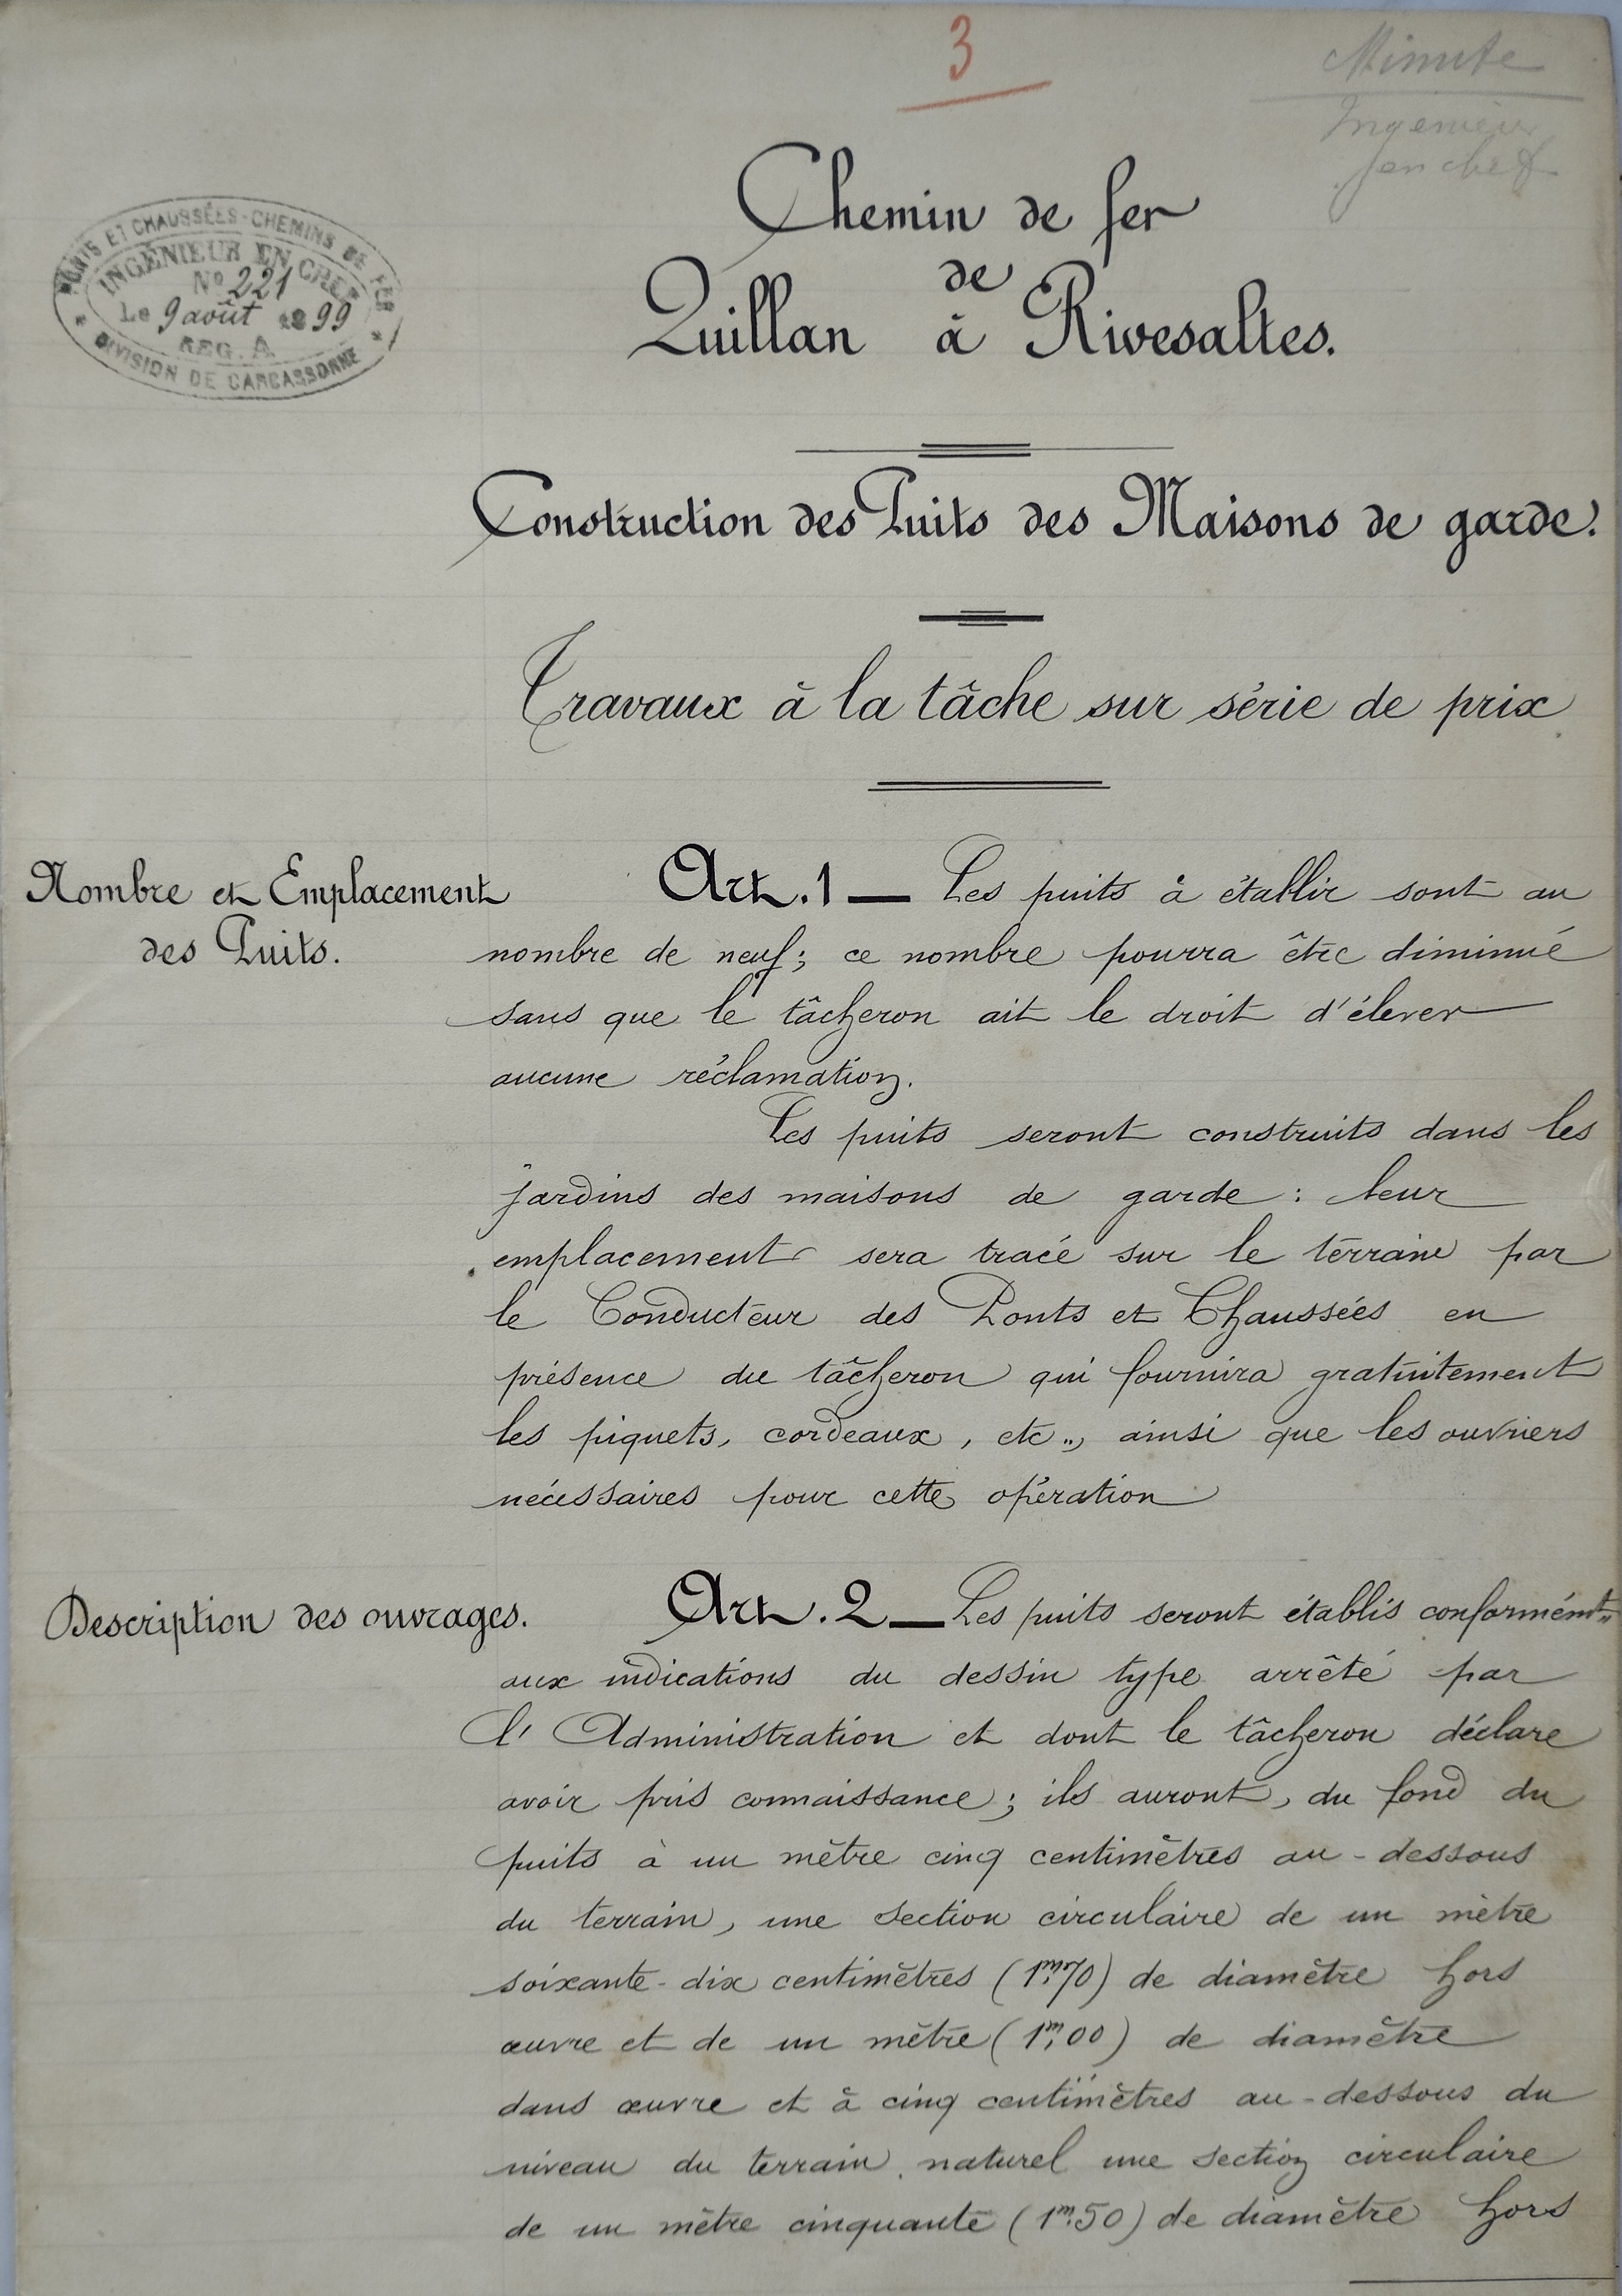 3
Minute
Ingénieur
en chef
PONTS ET CHAUSSÉES - CHEMINS DE FER
INGÉNIEUR EN CHEF
No 221
Le 9 août 1899
REG. A
DIVISION DE CARCASSONNE
Chemin de fer
de
Quillan à Rivesaltes.
Construction des Puits des Maisons de garde.
Travaux à la tâche sur série de prix
Nombre et Emplacement
des Puits.
Art. 1 — Les puits à établir sont au
nombre de neuf; ce nombre pourra être diminué
sans que le tâcheron ait le droit d'élever
aucune réclamation.
Les puits seront construits dans les
jardins des maisons de garde : leur
emplacement sera tracé sur le terrain par
le Conducteur des Ponts et Chaussées en
présence du tâcheron qui fournira gratuitement
les piquets, cordeaux, etc.., ainsi que les ouvriers
nécessaires pour cette opération
Description des ouvrages.
Art. 2 — Les puits seront établis conformémt..
aux indications du dessin type arrêté par
l'Administration et dont le tâcheron déclare
avoir pris connaissance; ils auront, du fond du
puits à un mètre cinq centimètres au-dessous
du terrain, une section circulaire de un mètre
soixante-dix centimètres (1m,70) de diamètre hors
œuvre et de un mètre (1m,00) de diamètre
dans œuvre et à cinq centimètres au-dessous du
niveau du terrain naturel une section circulaire
de un mètre cinquante (1m.50) de diamètre hors